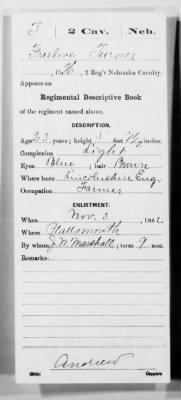 T 2 Cav. Neb.
Freelove Turner
, Co. H, 2 Reg't Nebraska Cavalry.
Appears on
Regimental Descriptive Book
of the regiment named above.
DESCRIPTION.
Age 23 years; height 5 feet 7½ inches.
Complexion Light
Eyes Blue; hair Brown
Where born Lincolnshire Eng.
Occupation Farmer
ENLISTMENT.
When Nov. 3, 1862.
Where Plattsmouth
By whom J. W. Marshall; term 9 mos.
Remarks:
Andrew
Copyist.